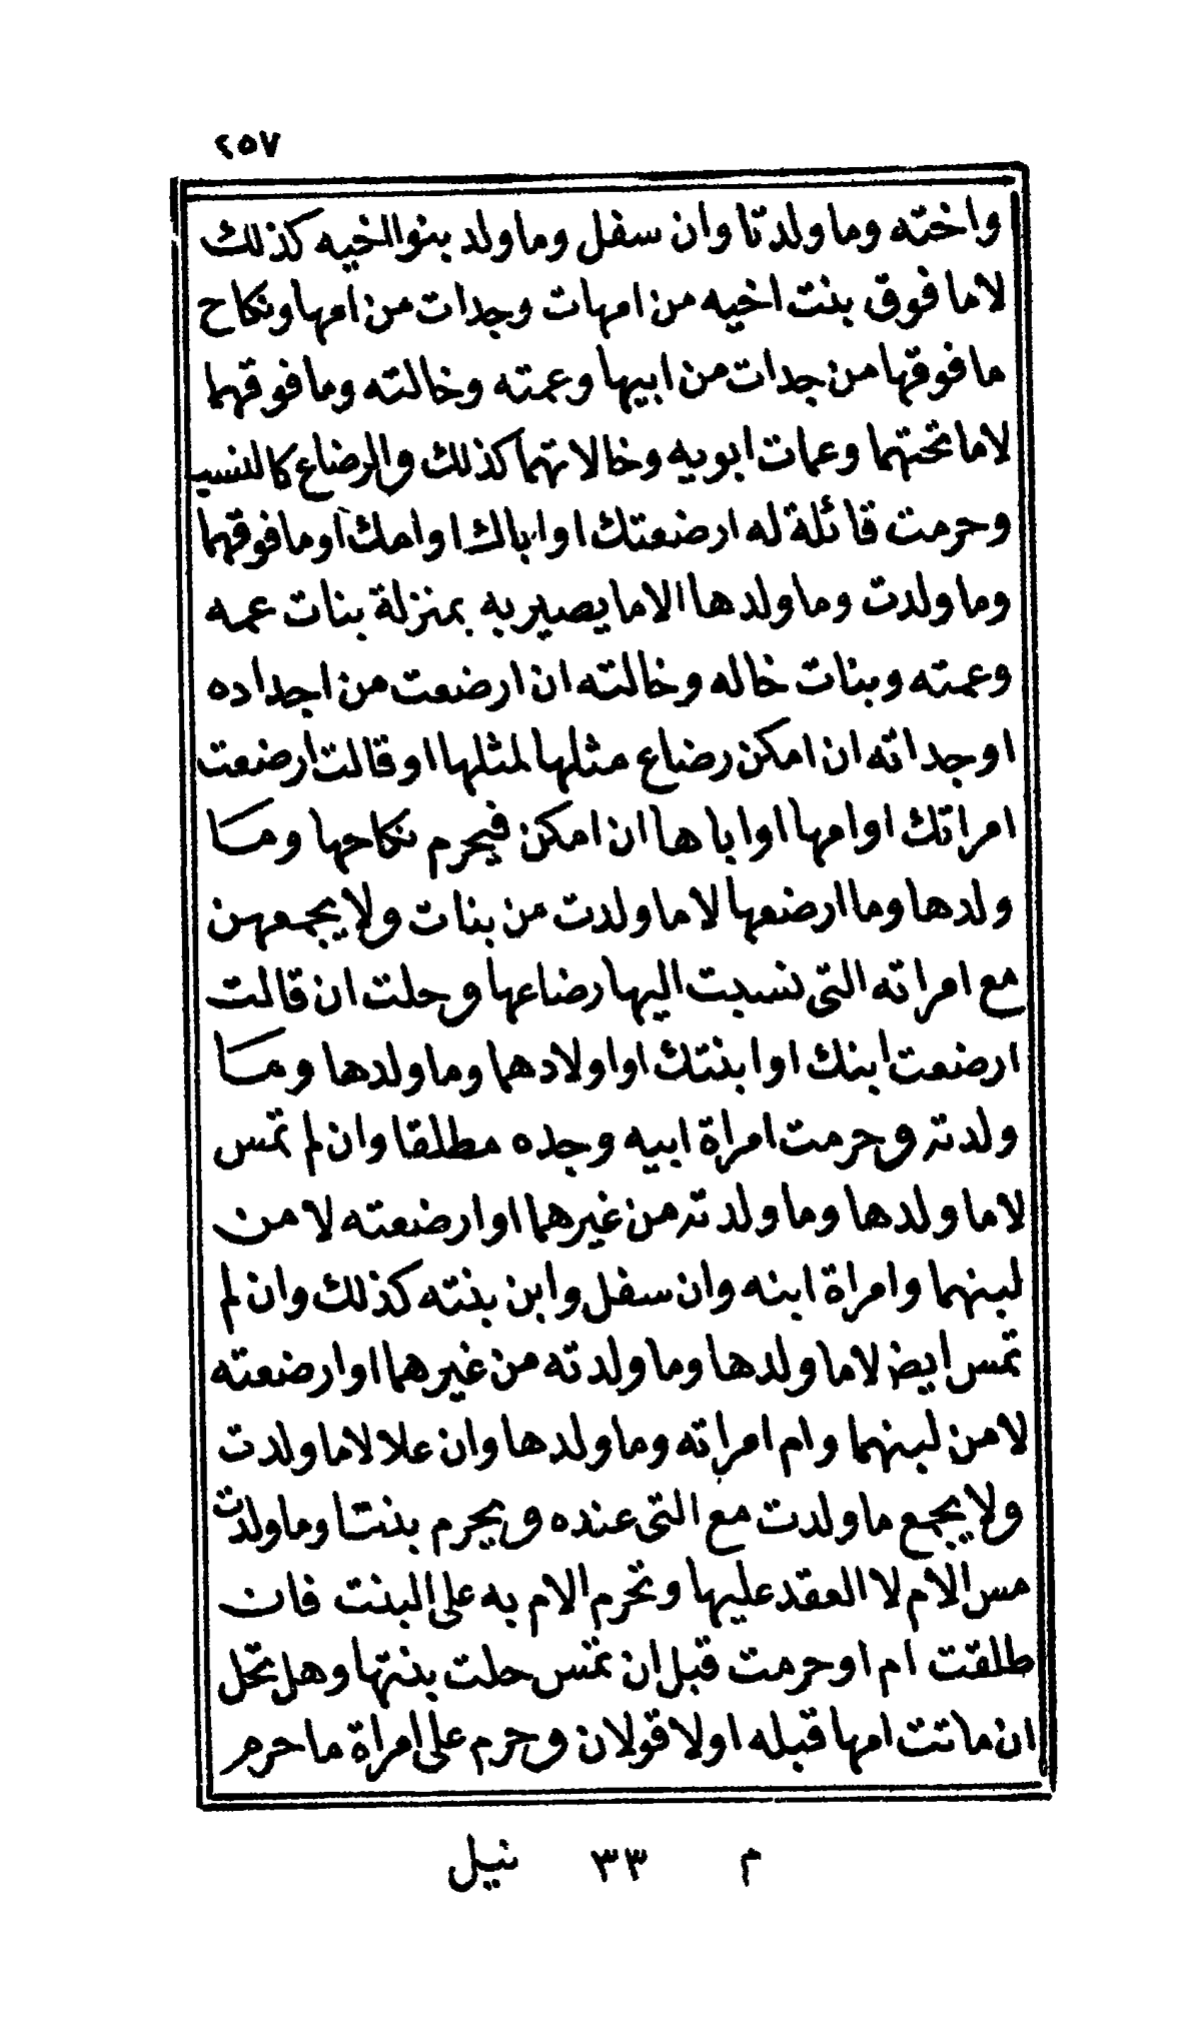 ٢٥٧
واخته وما ولدتا وان سفل وما ولد بنوا اخيه كذلك
لاما فوق بنت اخيه من امهات وجدات من امها ونكاح
ما فوقها من جدات من ابيها وعمته وخالته وما فوقهما
لاما تحتهما وعمات ابويه وخالاتهما كذلك والرضاع كالنسب
وحرمت قائلة له ارضعتك او اباك او امك او ما فوقهما
وما ولدت وما ولدها الا ما يصير به بمنزلة بنات عمه
وعمته وبنات خاله وخالته ان ارضعت من اجداده
او جداته ان امكن رضاع مثلها لمثلها او قالت ارضعت
امراتك او امها او اباها ان امكن فيحرم نكاحها وما
ولدها وما ارضعها لا ما ولدت من بنات ولا يجمعهن
مع امراته التى نسبت اليها رضاعها وحلت ان قالت
ارضعت ابنك او ابنتك او اولادهما وما ولدها وما
ولدته وحرمت امراة ابيه وجده مطلقا وان لم تمس
لاما ولدها وما ولدته من غيرهما او ارضعته لا من
لبنهما وامراة ابنه وان سفل وابن بنته كذلك وان لم
تمس ايضا لاما ولدها وما ولدته من غيرهما او ارضعته
لا من لبنهما وام امراته وما ولدها وان علا لاما ولدت
ولا يجمع ما ولدت مع التى عنده ويحرم بنتا وما ولدت
مس الام لا العقد عليها وتحرم الام به على البنت فان
طلقت ام او حرمت قبل ان تمس حلت بنتها وهل تحل
ان ماتت امها قبله او لا قولان وحرم على امراة ما حرم
م ٣٣ نيل